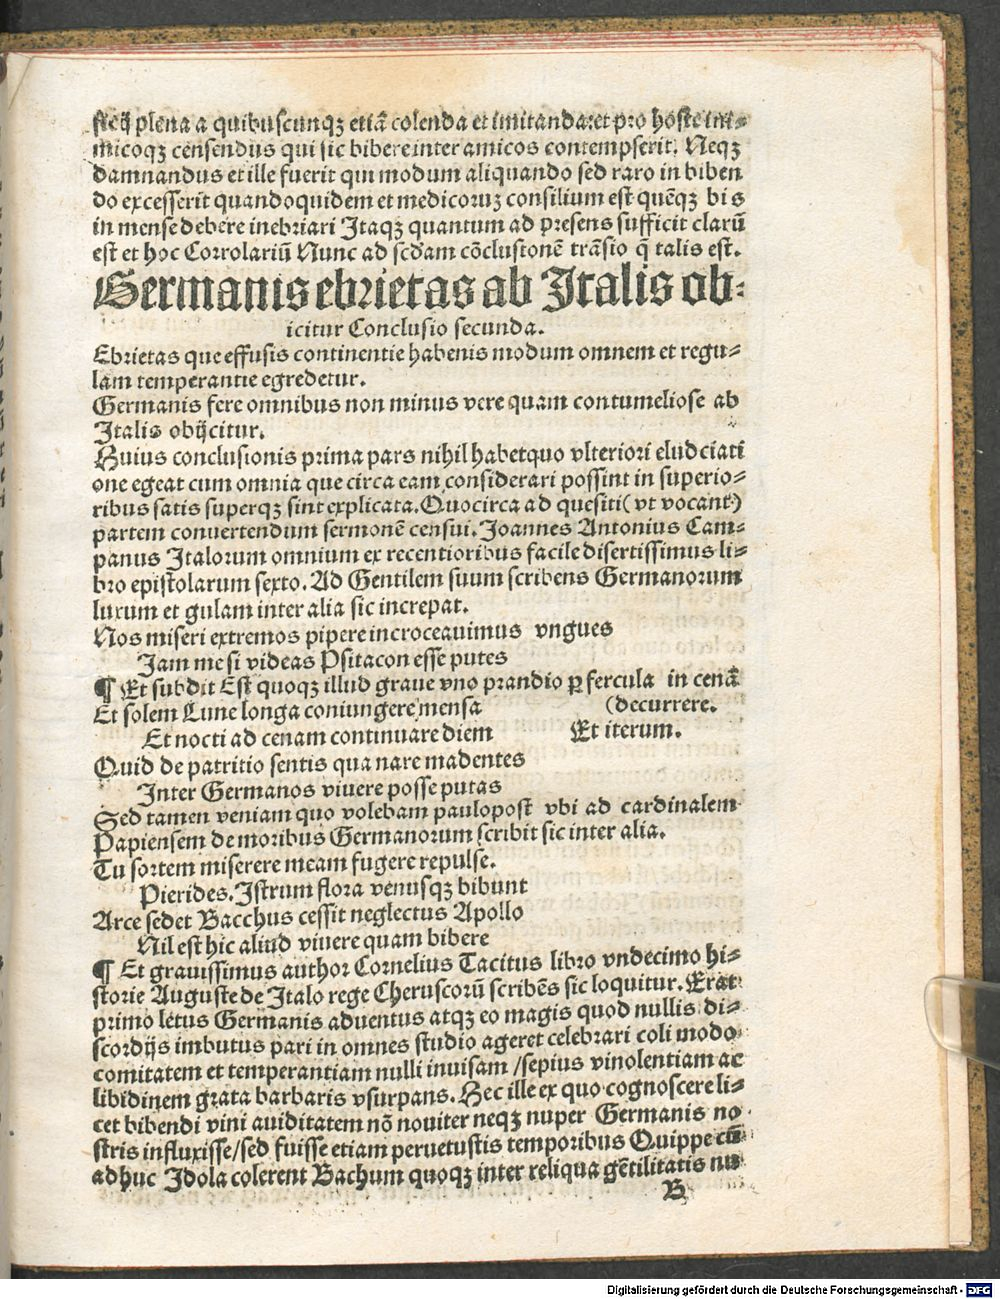 ficij plena a quibuscunqꝫ etiā colenda et imitanda: et pro hoste ini⸗
micoqꝫ censendus qui sic bibere inter amicos contempserit. Neqꝫ
damnandus et ille fuerit qui modum aliquando sed raro in biben
do excesserit quandoquidem et medicoruꝫ consilium est quēqꝫ bis
in mense debere inebriari Itaqꝫ quantum ad presens sufficit clarū
est et hoc Corrolariū Nunc ad scdam cōclusionē trāsio q̄ talis est.
Germanis ebrietas ab Italis ob⸗
icitur Conclusio secunda.
Ebrietas que effusis continentie habenis modum omnem et regu⸗
lam temperantie egredetur.
Germanis fere omnibus non minus vere quam contumeliose ab
Italis obijcitur.
Huius conclusionis prima pars nihil habet quo vlteriori elud ciati
one egeat cum omnia que circa eam considerari possint in superio⸗
ribus satis superqꝫ sint explicata. Quocirca ad quesiti (vt vocant)
partem conuertendum sermonē censui. Joannes Antonius Cam⸗
panus Italorum omnium ex recentioribus facile disertissimus li⸗
bro epistolarum sexto. Ad Gentilem suum scribens Germanorum
luxum et gulam inter alia sic increpat.
Nos miseri extremos pipere incroceauimus vngues
Jam me si videas Psitacon esse putes
¶ Et subdit Est quoqꝫ illud graue vno prandio ꝑ fercula in cenā
Et solem Lune longa coniungere mensa (decurrere.
Et nocti ad cenam continuare diem Et iterum.
Quid de patritio sentis qua nare madentes
Inter Germanos viuere posse putas
Sed tamen veniam quo volebam paulopost vbi ad cardinalem
Papiensem de moribus Germanorum scribit sic inter alia.
Tu sortem miserere meam fugere repulse.
Pierides. Istrum flora venusqꝫ bibunt
Arce sedet Bacchus cessit neglectus Apollo
Nil est hic aliud viuere quam bibere
¶ Et grauissimus author Cornelius Tacitus libro vndecimo hi⸗
storie Auguste de Italo rege Cheruscorū scribēs sic loquitur. Erat
primo letus Germanis aduentus atqꝫ eo magis quod nullis di⸗
scordijs imbutus pari in omnes studio ageret celebrari coli modo
comitatem et temperantiam nulli inuisam /sepius vinolentiam ac
libidinem grata barbaris vsurpans. Hec ille ex quo cognoscere li⸗
cet bibendi vini auiditatem nō nouiter neqꝫ nuper Germanis no
stris influxisse/sed fuisse etiam peruetustis temporibus Quippe cū
adhuc Idola colerent Bachum quoqꝫ inter reliqua gētilitatis nu
B
Digitalisierung gefördert durch die Deutsche Forschungsgemeinschaft - DFG